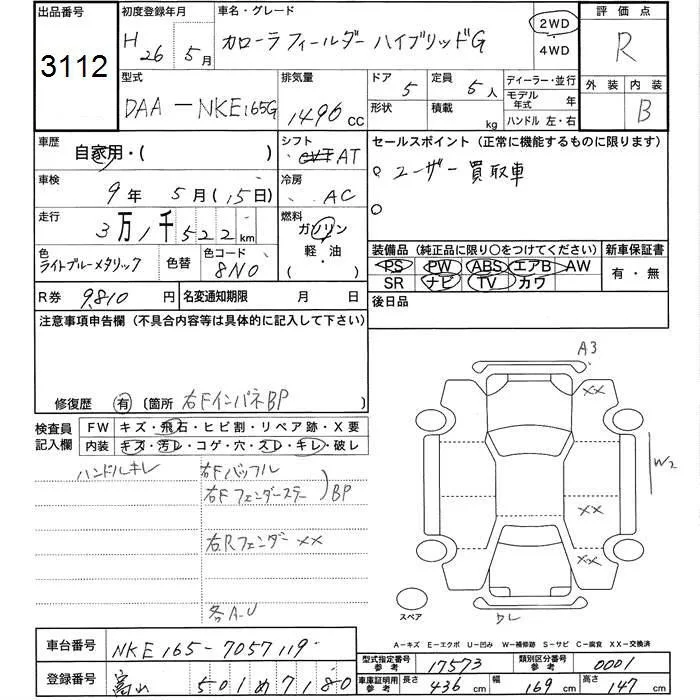 出品番号 初度登録年月 車名・グレード 評価点
3112 H 26 5月 カローラフィールダー ハイブリッドG 2WD 4WD R
型式 排気量 ドア 定員 ディーラー・並行 外装 内装
DAA-NKE165G 1496 cc 5 5人 モデル年式 年 B
形状 積載 kg ハンドル 左・右
車歴 シフト セールスポイント (正常に機能するものに限ります)
自家用・( ) CVT AT ○ ユーザー買取車
車検 冷房
9年 5月 (15日) AC ○
走行 燃料
3万1千522km ガソリン
色 色替 色コード 軽・油 装備品 (純正品に限り○をつけてください) 新車保証書
ライトブルーメタリック 8N0 ( ) PS PW ABS エアB AW 有・無
SR ナビ TV カワ
R券 9,810円 名変通知期限 月 日 後日品
注意事項申告欄 (不具合内容等は具体的に記入して下さい)
修復歴 有 (箇所 右FインパネBP
A3
検査員記入欄 FW キズ・飛石・ヒビ割・リペア跡・X要
内装 キズ・汚レ・コゲ・穴・スレ・キレ・破レ
ハンドルキレ 右Fバッフル
右Fフェンダーステー BP
右Rフェンダー XX
各A-U
XX
W2
XX
XX
スペア
A-キズ E-エクボ U-凹み W-補修跡 S-サビ C-腐食 XX-交換済
車台番号 NKE165-7057119
型式指定番号参考 17573 類別区分番号参考 0001
登録番号 富山 501 め 7180
車庫証明用参考 長さ 436 cm 幅 169 cm 高さ 147 cm